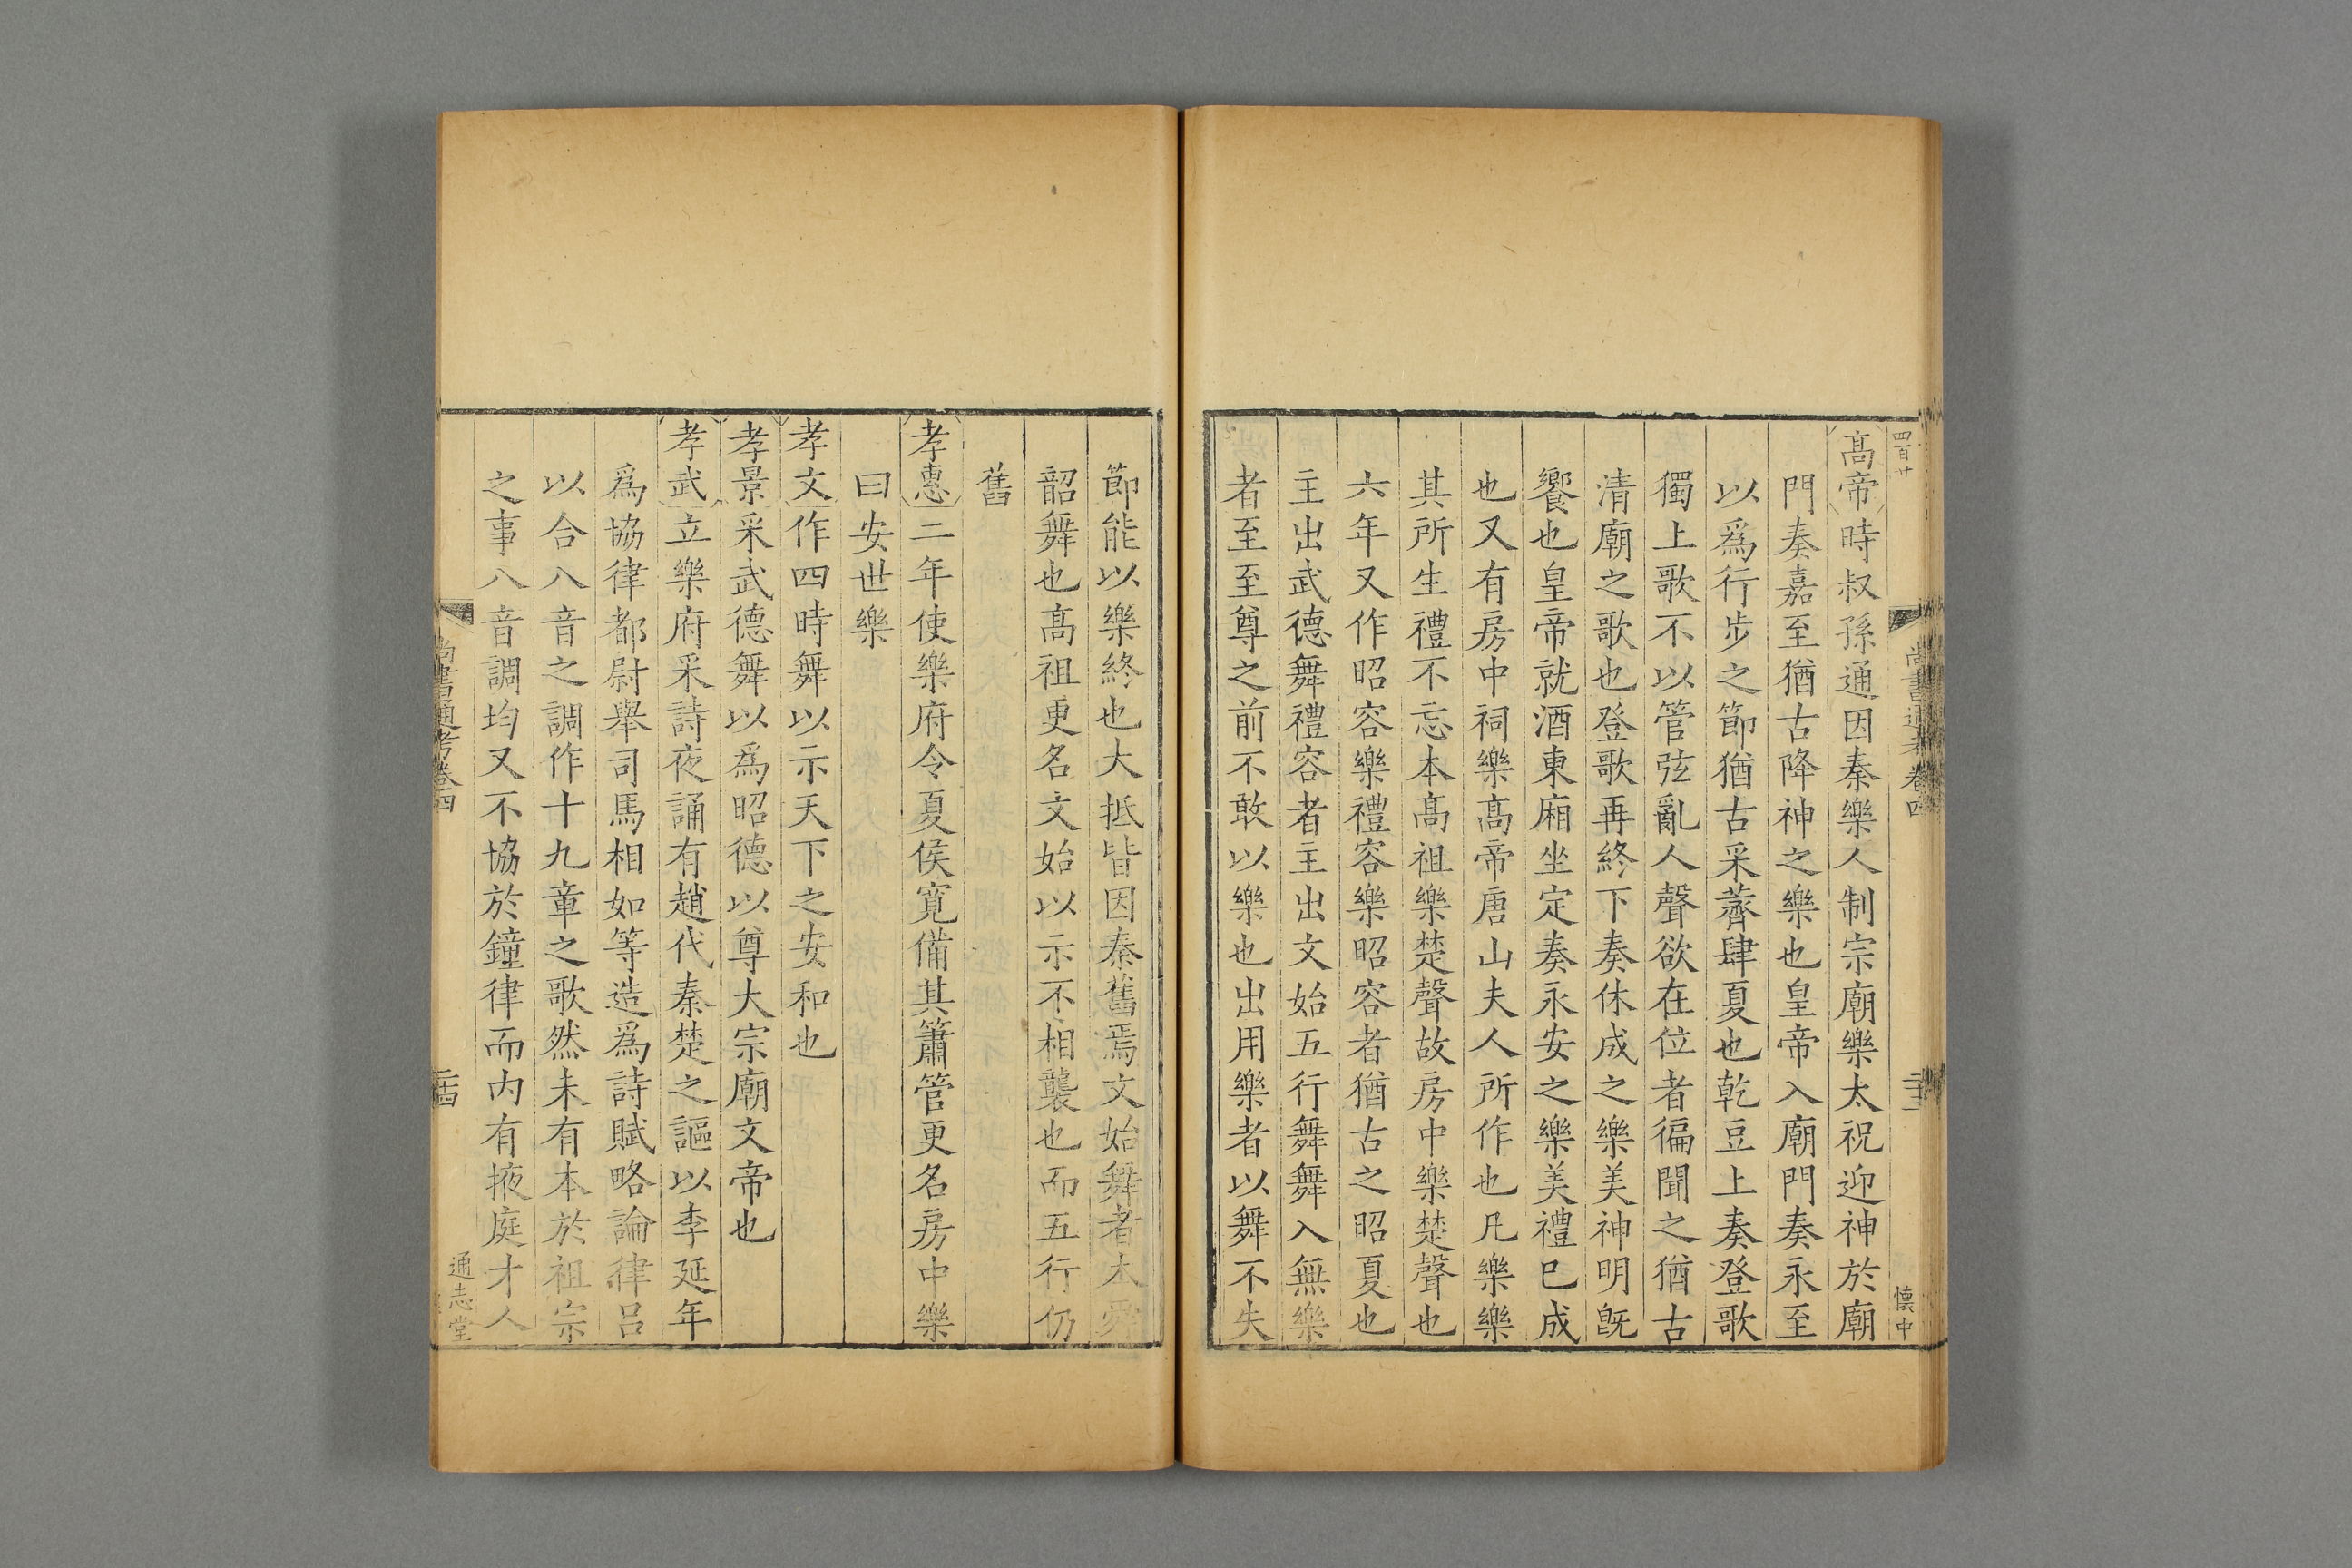 四百廿
尚書通考卷四
二十三
懷中
髙帝時叔孫通因秦樂人制宗廟樂太祝迎神於廟
門奏嘉至猶古降神之樂也皇帝入廟門奏永至
以爲行步之節猶古采薺肆夏也乾豆上奏登歌
獨上歌不以管弦亂人聲欲在位者徧聞之猶古
清廟之歌也登歌再終下奏休成之樂美神明旣
饗也皇帝就酒東廂坐定奏永安之樂美禮已成
也又有房中祠樂髙帝唐山夫人所作也凡樂樂
其所生禮不忘本髙祖樂楚聲故房中樂楚聲也
六年又作昭容樂禮容樂昭容者猶古之昭夏也
主出武德舞禮容者主出文始五行舞舞入無樂
者至至尊之前不敢以樂也出用樂者以舞不失
節能以樂終也大抵皆因秦舊焉文始舞者大舜
韶舞也髙祖更名文始以示不相襲也而五行仍
舊
孝惠二年使樂府令夏侯寬備其簫管更名房中樂
曰安世樂
孝文作四時舞以示天下之安和也
孝景采武德舞以爲昭德以尊大宗廟文帝也
孝武立樂府采詩夜誦有趙代秦楚之謳以李延年
爲協律都尉舉司馬相如等造爲詩賦略論律呂
以合八音之調作十九章之歌然未有本於祖宗
之事八音調均又不協於鐘律而内有掖庭才人
尚書通考卷四
二十四
通志堂